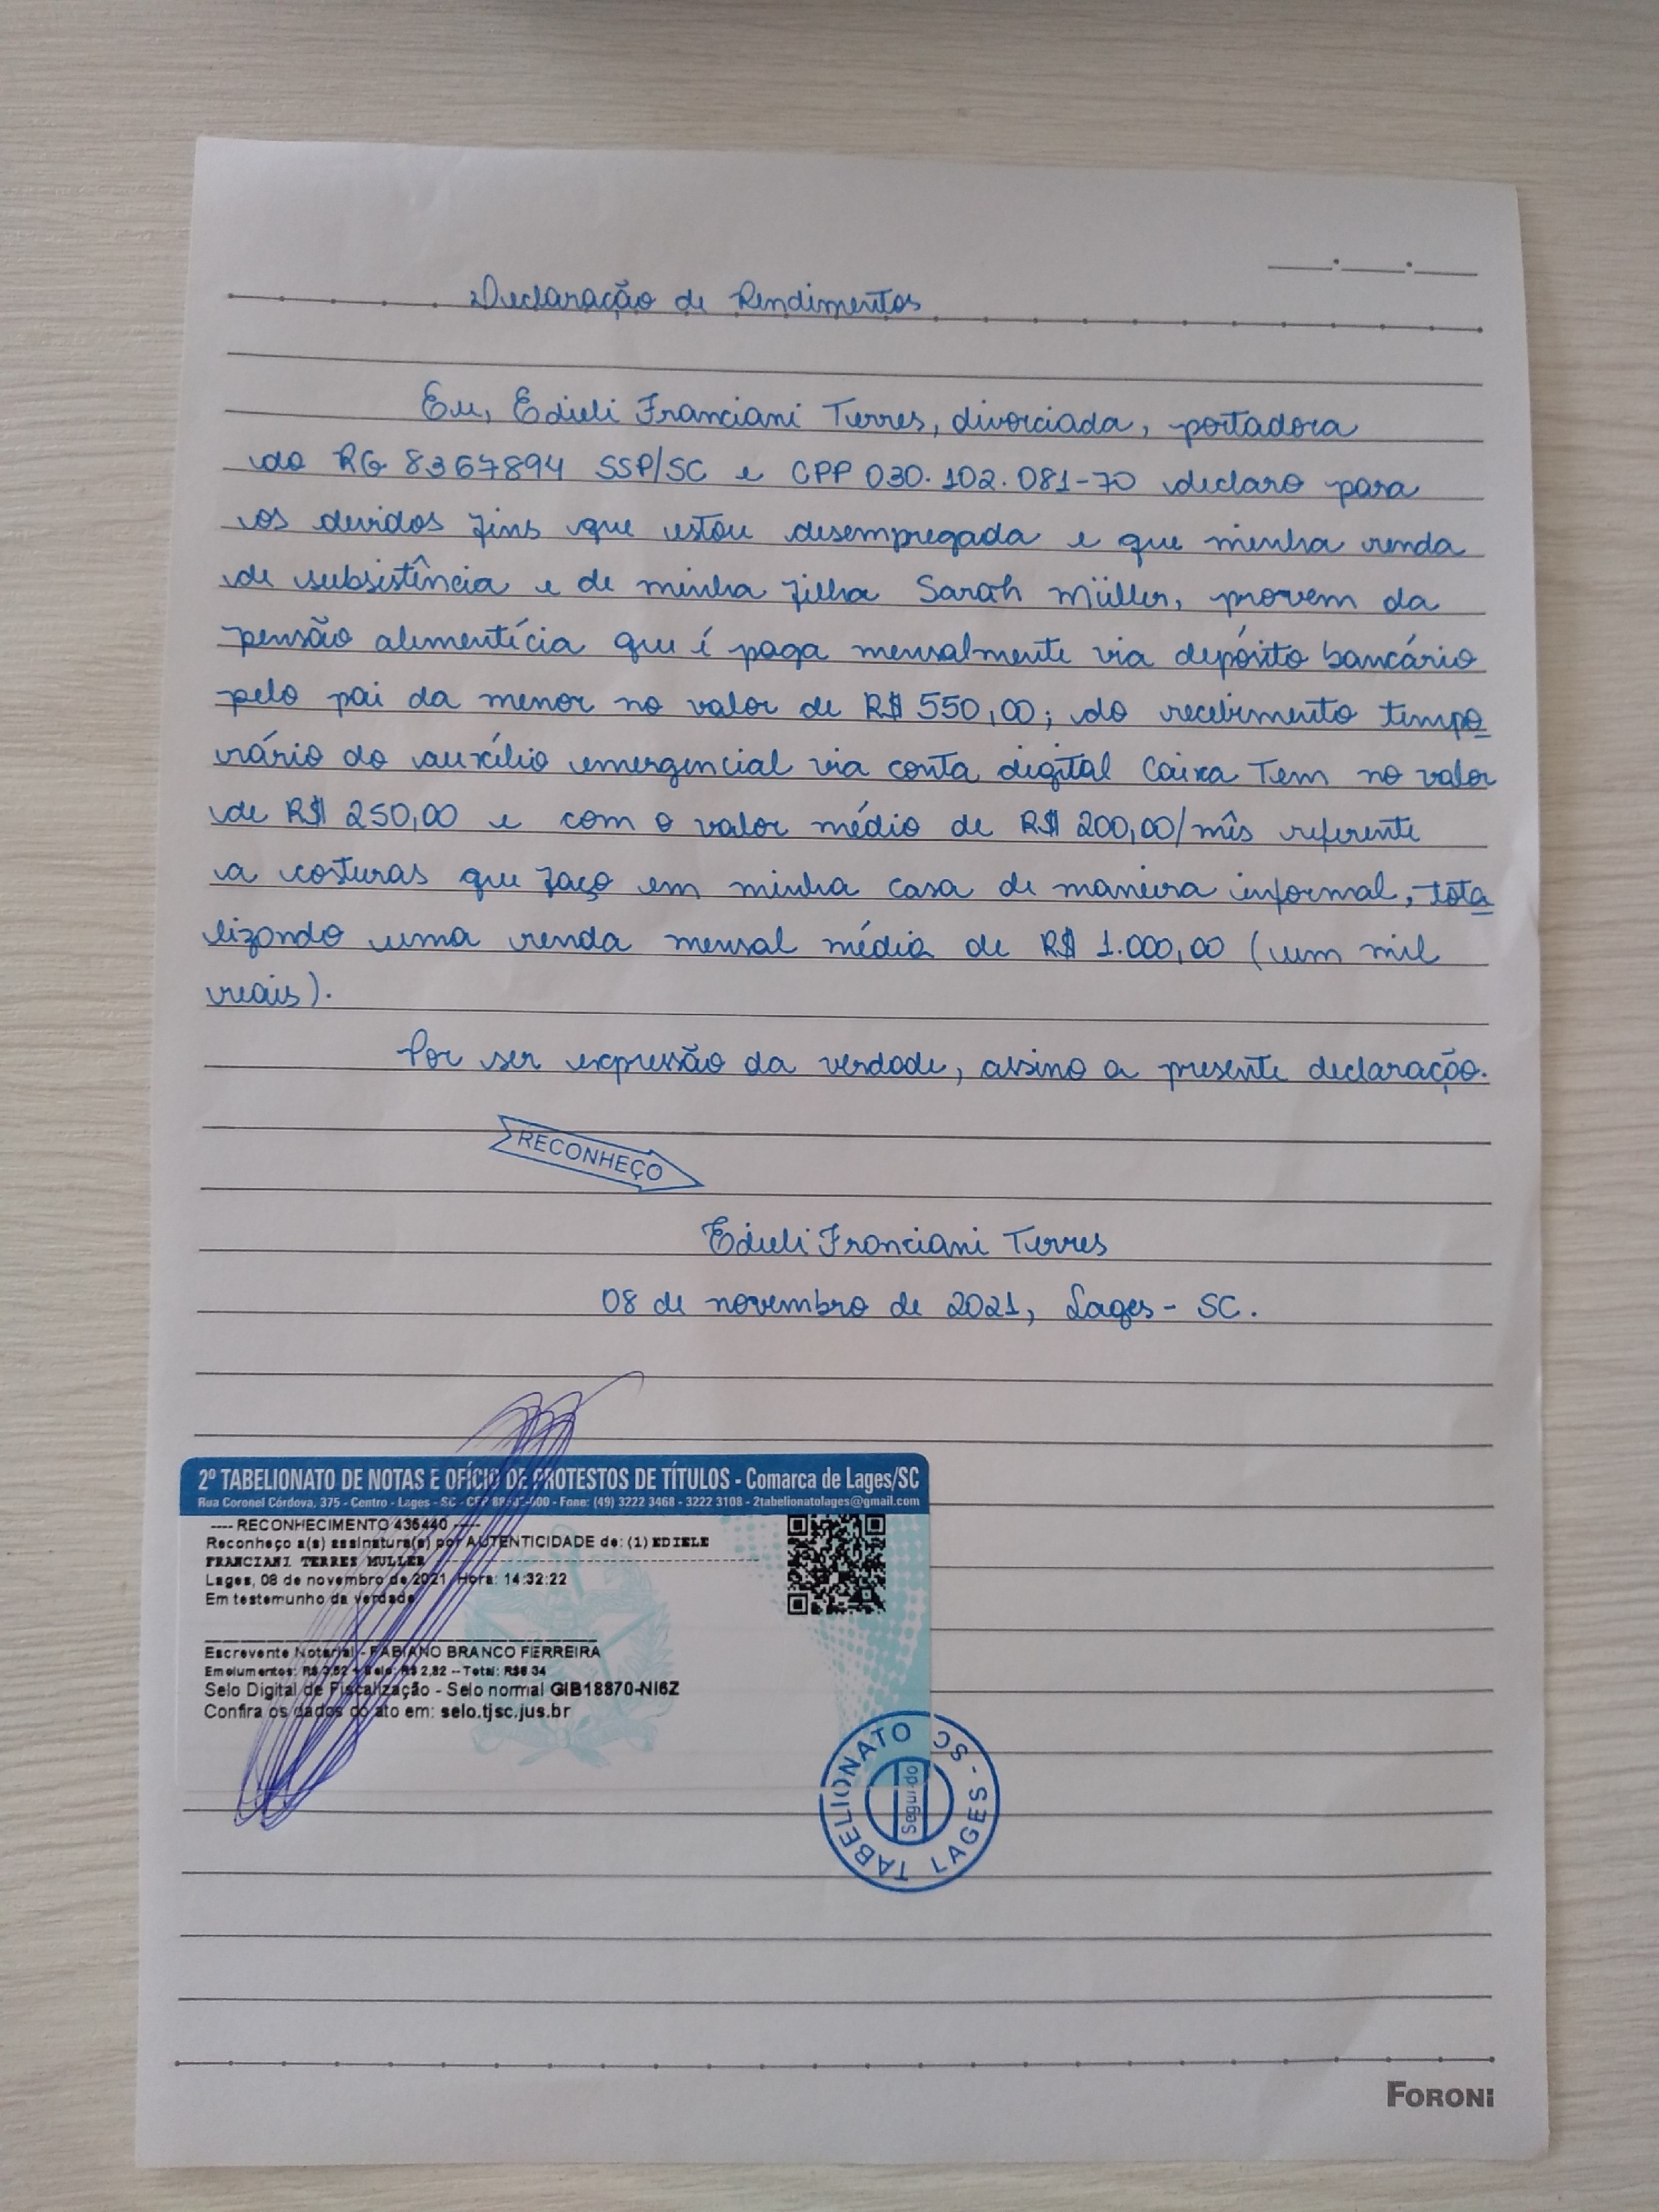 Declaração de Rendimentos
Eu, Edieli Franciani Terres, divorciada, portadora
do RG 8367894 SSP/SC e CPF 030.102.081-70 declaro para
os devidos fins que estou desempregada e que minha renda
de subsistência e de minha filha Sarah Müller, provem da
pensão alimentícia que é paga mensalmente via depósito bancário
pelo pai da menor no valor de R$ 550,00; do recebimento tempo
rário do auxílio emergencial via conta digital Caixa Tem no valor
de R$ 250,00 e com o valor médio de R$ 200,00/mês referente
a costuras que faço em minha casa de maneira informal, tota
lizando uma renda mensal média de R$ 1.000,00 (um mil
reais).
Por ser expressão da verdade, assino a presente declaração.
RECONHEÇO
Edieli Franciani Terres
08 de novembro de 2021, Lages - SC.
2º TABELIONATO DE NOTAS E OFÍCIO DE PROTESTOS DE TÍTULOS - Comarca de Lages/SC
Rua Coronel Córdova, 375 - Centro - Lages - SC - CEP - Fone: (49) 3222 3468 - 3222 3108 - 2tabelionatolages@gmail.com
---- RECONHECIMENTO 435440 ----
Reconheço a(s) assinatura(s) por AUTENTICIDADE de: (1) EDIELE
FRANCIANI TERRES MULLER
Lages, 08 de novembro de 2021 Hora: 14:32:22
Em testemunho da verdade
Escrevente Notarial - FABIANO BRANCO FERREIRA
Emolumentos: R$ 3,52 + Selo: R$ 2,82 -- Total: R$6 34
Selo Digital de Fiscalização - Selo normal GIB18870-NI6Z
Confira os dados do ato em: selo.tjsc.jus.br
TABELIONATO
Segundo
LAGES - SC
FORONI